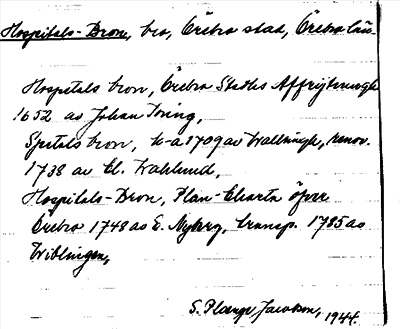 Hospitals-Bron, bro, Örebro stad, Örebro län.
Hospetals bron, Örebro Stadhs Affrijtningh
1652 av Johan Töring,
Spetals bron, k-a 1709 av Wallingh, renov.
1738 av El. Wahlund,
Hospitals-Bron, Plan-Charta öfver
Örebro 1748 av E. Nyberg, transp. 1785 av
Wiblingen,
S. Plænge Jacobson, 1944.